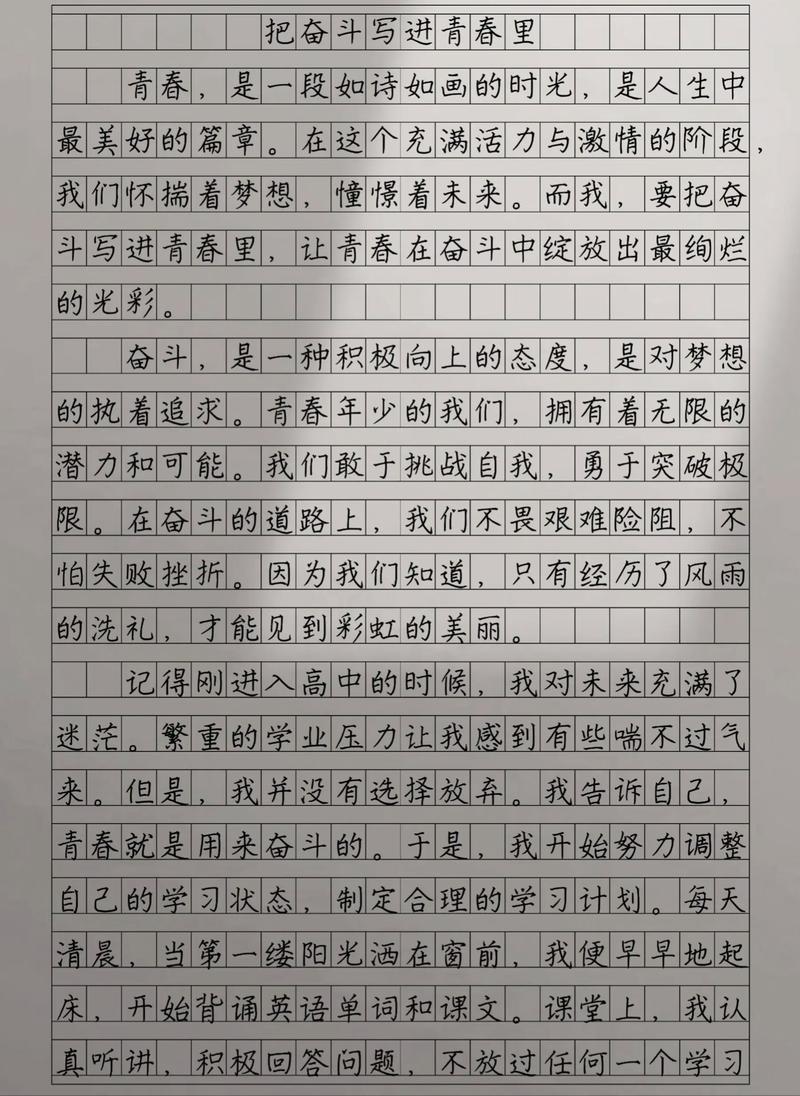 把奋斗写进青春里
青春，是一段如诗如画的时光，是人生中
最美好的篇章。在这个充满活力与激情的阶段，
我们怀揣着梦想，憧憬着未来。而我，要把奋
斗写进青春里，让青春在奋斗中绽放出最绚烂
的光彩。
奋斗，是一种积极向上的态度，是对梦想
的执着追求。青春年少的我们，拥有着无限的
潜力和可能。我们敢于挑战自我，勇于突破极
限。在奋斗的道路上，我们不畏艰难险阻，不
怕失败挫折。因为我们知道，只有经历了风雨
的洗礼，才能见到彩虹的美丽。
记得刚进入高中的时候，我对未来充满了
迷茫。繁重的学业压力让我感到有些喘不过气
来。但是，我并没有选择放弃。我告诉自己，
青春就是用来奋斗的。于是，我开始努力调整
自己的学习状态，制定合理的学习计划。每天
清晨，当第一缕阳光洒在窗前，我便早早地起
床，开始背诵英语单词和课文。课堂上，我认
真听讲，积极回答问题，不放过任何一个学习